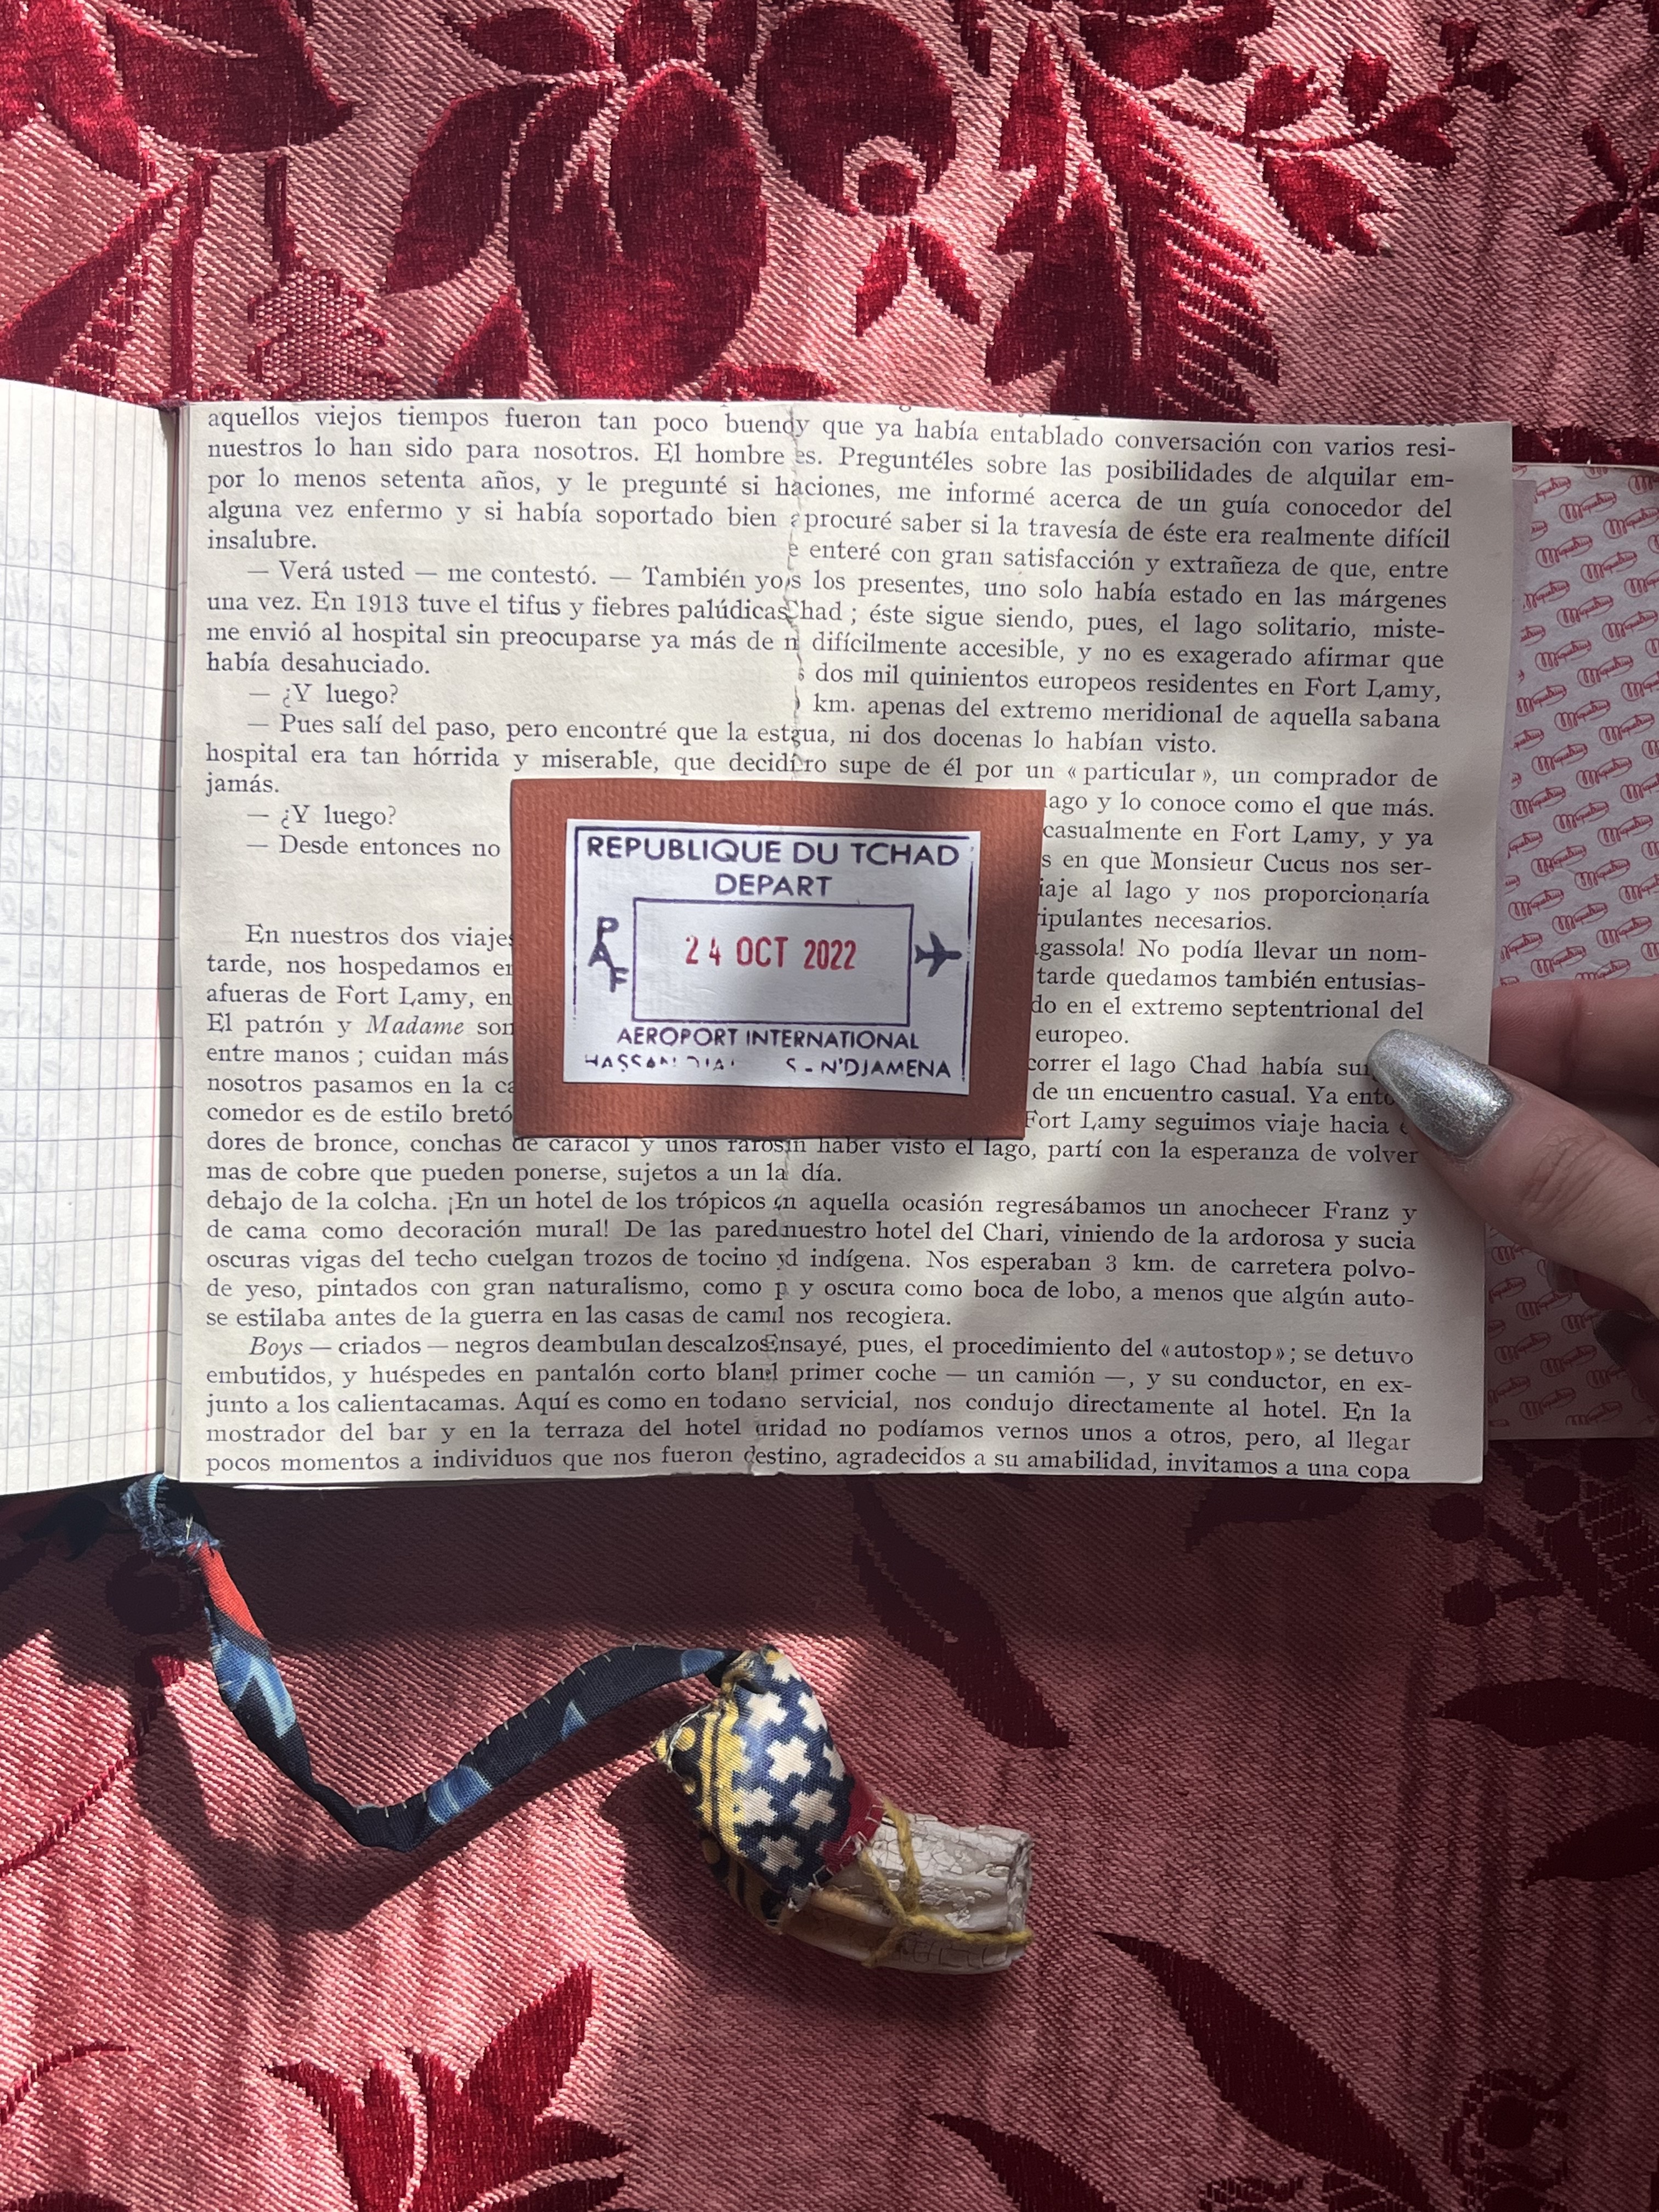 aquellos viejos tiempos fueron tan poco buen
nuestros lo han sido para nosotros. El hombre
por lo menos setenta años, y le pregunté si h
alguna vez enfermo y si había soportado bien
insalubre.
— Verá usted — me contestó. — También yo
una vez. En 1913 tuve el tifus y fiebres palúdicas
me envió al hospital sin preocuparse ya más de
había desahuciado.
— ¿Y luego?
— Pues salí del paso, pero encontré que la est
hospital era tan hórrida y miserable, que decidí
jamás.
— ¿Y luego?
— Desde entonces no
En nuestros dos viajes
tarde, nos hospedamos en
afueras de Fort Lamy, en
El patrón y Madame son
entre manos ; cuidan más
nosotros pasamos en la ca
comedor es de estilo bretó
dores de bronce, conchas de caracol y unos raros
mas de cobre que pueden ponerse, sujetos a un la
debajo de la colcha. ¡En un hotel de los trópicos
de cama como decoración mural! De las pared
oscuras vigas del techo cuelgan trozos de tocino y
de yeso, pintados con gran naturalismo, como p
se estilaba antes de la guerra en las casas de cam
Boys — criados — negros deambulan descalzos
embutidos, y huéspedes en pantalón corto blan
junto a los calientacamas. Aquí es como en toda
mostrador del bar y en la terraza del hotel
pocos momentos a individuos que nos fueron
y que ya había entablado conversación con varios resi-
es. Preguntéles sobre las posibilidades de alquilar em-
aciones, me informé acerca de un guía conocedor del
procuré saber si la travesía de éste era realmente difícil
e enteré con gran satisfacción y extrañeza de que, entre
s los presentes, uno solo había estado en las márgenes
had ; éste sigue siendo, pues, el lago solitario, miste-
difícilmente accesible, y no es exagerado afirmar que
dos mil quinientos europeos residentes en Fort Lamy,
km. apenas del extremo meridional de aquella sabana
gua, ni dos docenas lo habían visto.
ro supe de él por un « particular », un comprador de
lago y lo conoce como el que más.
casualmente en Fort Lamy, y ya
s en que Monsieur Cucus nos ser-
iaje al lago y nos proporcionaría
ripulantes necesarios.
gassola! No podía llevar un nom-
tarde quedamos también entusias-
do en el extremo septentrional del
europeo.
correr el lago Chad había
de un encuentro casual. Ya
Fort Lamy seguimos viaje hacia
in haber visto el lago, partí con la esperanza de volver
día.
n aquella ocasión regresábamos un anochecer Franz y
nuestro hotel del Chari, viniendo de la ardorosa y sucia
d indígena. Nos esperaban 3 km. de carretera polvo-
y oscura como boca de lobo, a menos que algún auto-
il nos recogiera.
Ensayé, pues, el procedimiento del « autostop » ; se detuvo
el primer coche — un camión —, y su conductor, en ex-
no servicial, nos condujo directamente al hotel. En la
uridad no podíamos vernos unos a otros, pero, al llegar
destino, agradecidos a su amabilidad, invitamos a una copa
REPUBLIQUE DU TCHAD
DEPART
PAF
24 OCT 2022
AEROPORT INTERNATIONAL
N'DJAMENA
Miquelrius